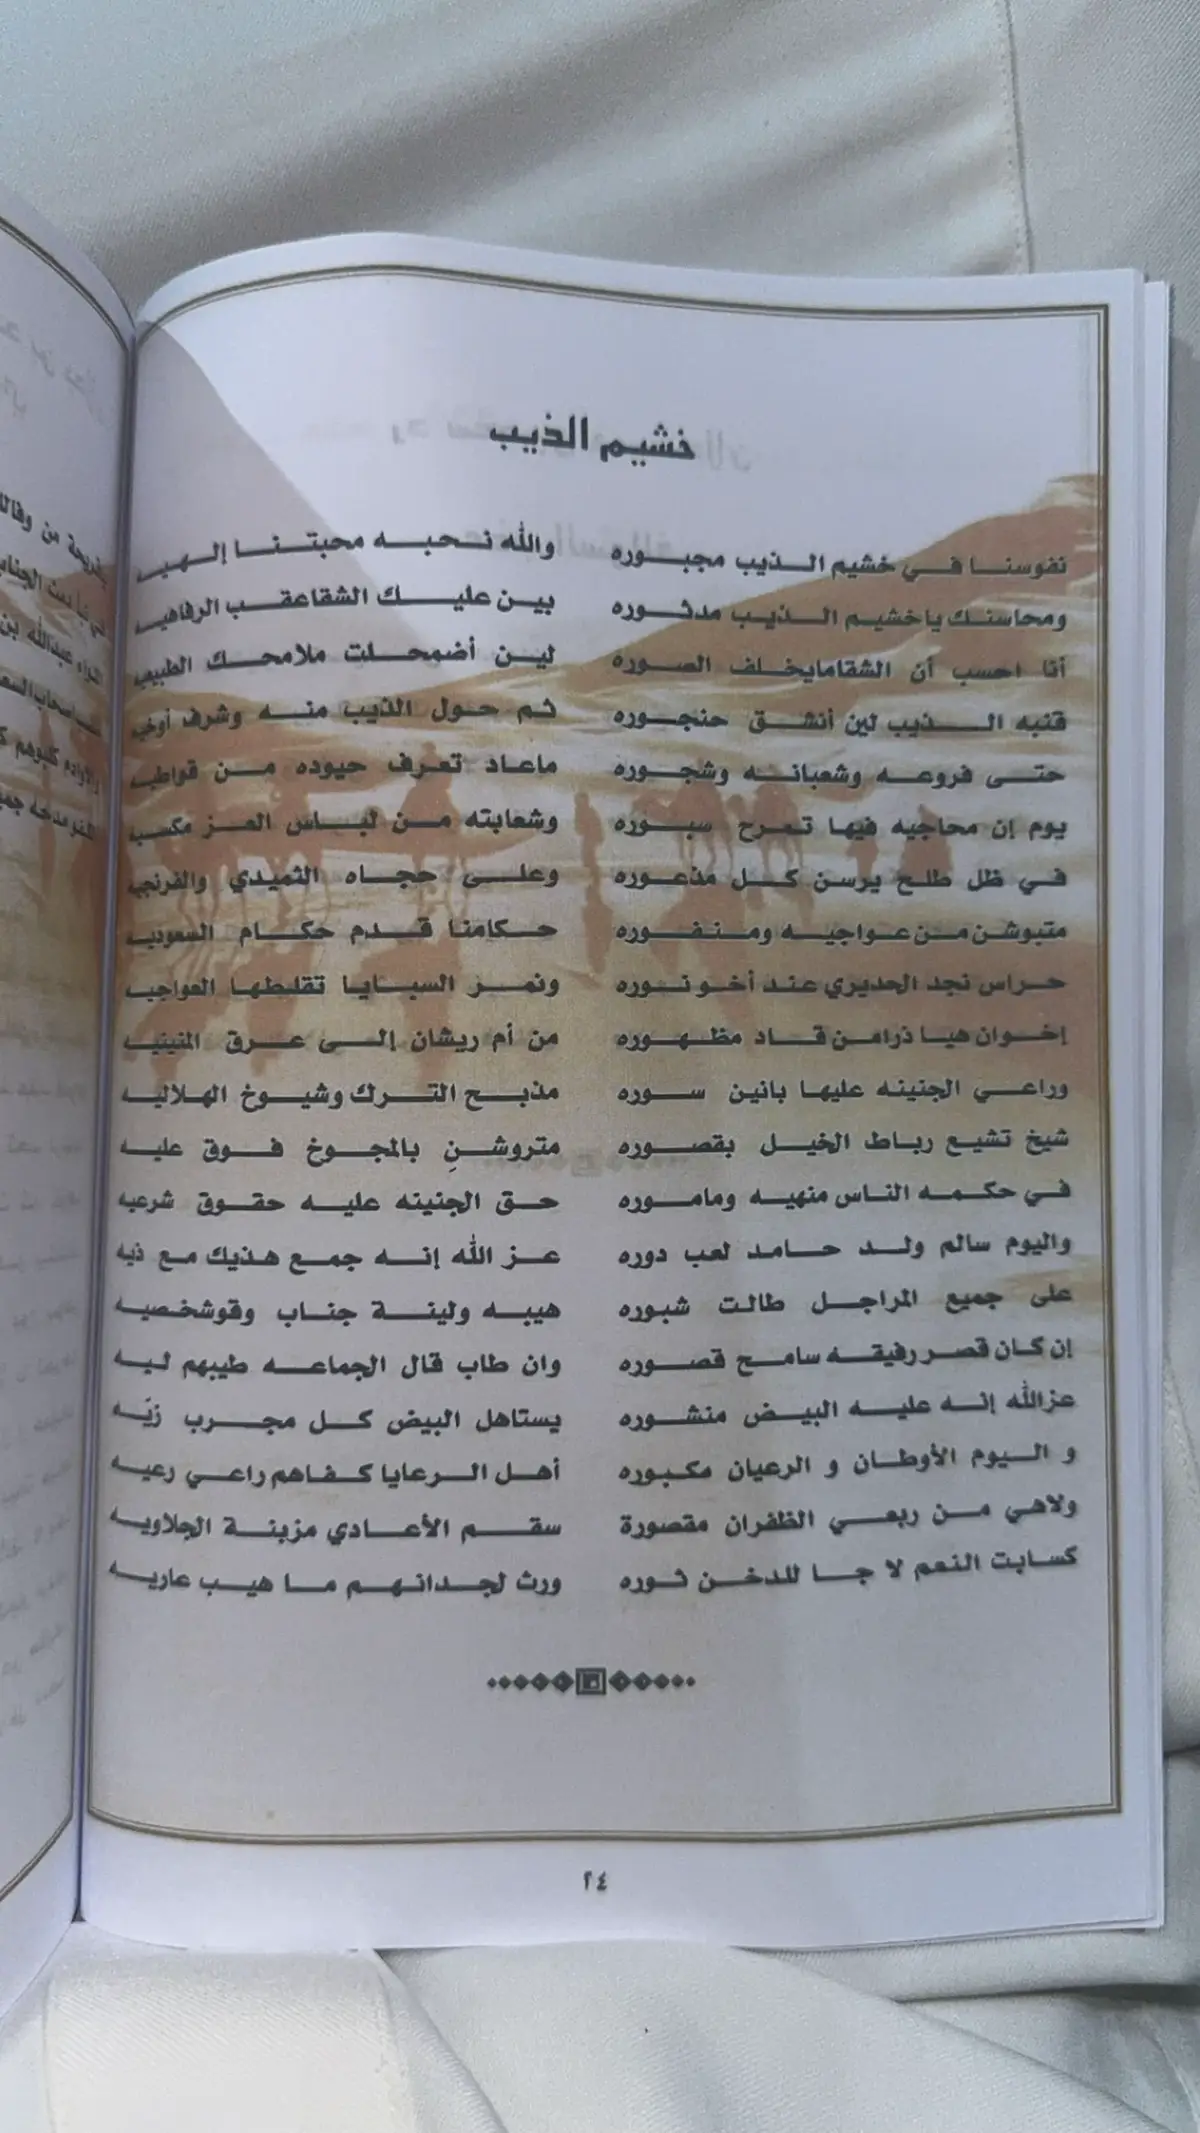 خشيم الذيب
نفوسنا في خشيم الذيب مجبوره والله نحبه محبتنا إلهيه
ومحاسنك ياخشيم الذيب مدثوره بين عليك الشقاعقب الرفاهيه
أنا احسب أن الشقامايخلف الصوره لين أضمحلت ملامحك الطبيعيه
قنبه الذيب لين أنشق حنجوره ثم حول الذيب منه وشرف أوخيه
حتى فروعه وشعبانه وشجوره ماعاد تعرف حيوده من قواطيه
يوم إن محاجيه فيها تمرح سبوره وشعابته من لباس العز مكسيه
في ظل طلح يرسن كل مذعوره وعلى حجاه الثميدي والفرنجيه
متبوشن من عواجيه ومنفوره حكامنا قدم حكام السعوديه
حراس نجد الحديري عند أخو نوره ونمر السبايا تقلطها العواجيه
إخوان هيا ذرامن قاد مظهوره من أم ريشان إلى عرق المنينيه
وراعي الجنينه عليها بانين سوره مذبح الترك وشيوخ الهلاليه
شيخ تشيع رباط الخيل بقصوره متروشنٍ بالمجوخ فوق عليه
في حكمه الناس منهيه وماموره حق الجنينه عليه حقوق شرعيه
واليوم سالم ولد حامد لعب دوره عز الله إنه جمع هذيك مع ذيه
على جميع المراجل طالت شبوره هيبه ولينة جناب وقوشخصيه
إن كان قصر رفيقه سامح قصوره وان طاب قال الجماعه طيبهم ليه
عزالله إنه عليه البيض منشوره يستاهل البيض كل مجرب زيّه
و اليوم الأوطان و الرعيان مكبوره أهل الرعايا كفاهم راعي رعيه
ولاهي من ربعي الظفران مقصورة سقم الأعادي مزبنة الجلاويه
كسابت النعم لا جا للدخن ثوره ورث لجدانهم ما هيب عاريه
٢٤